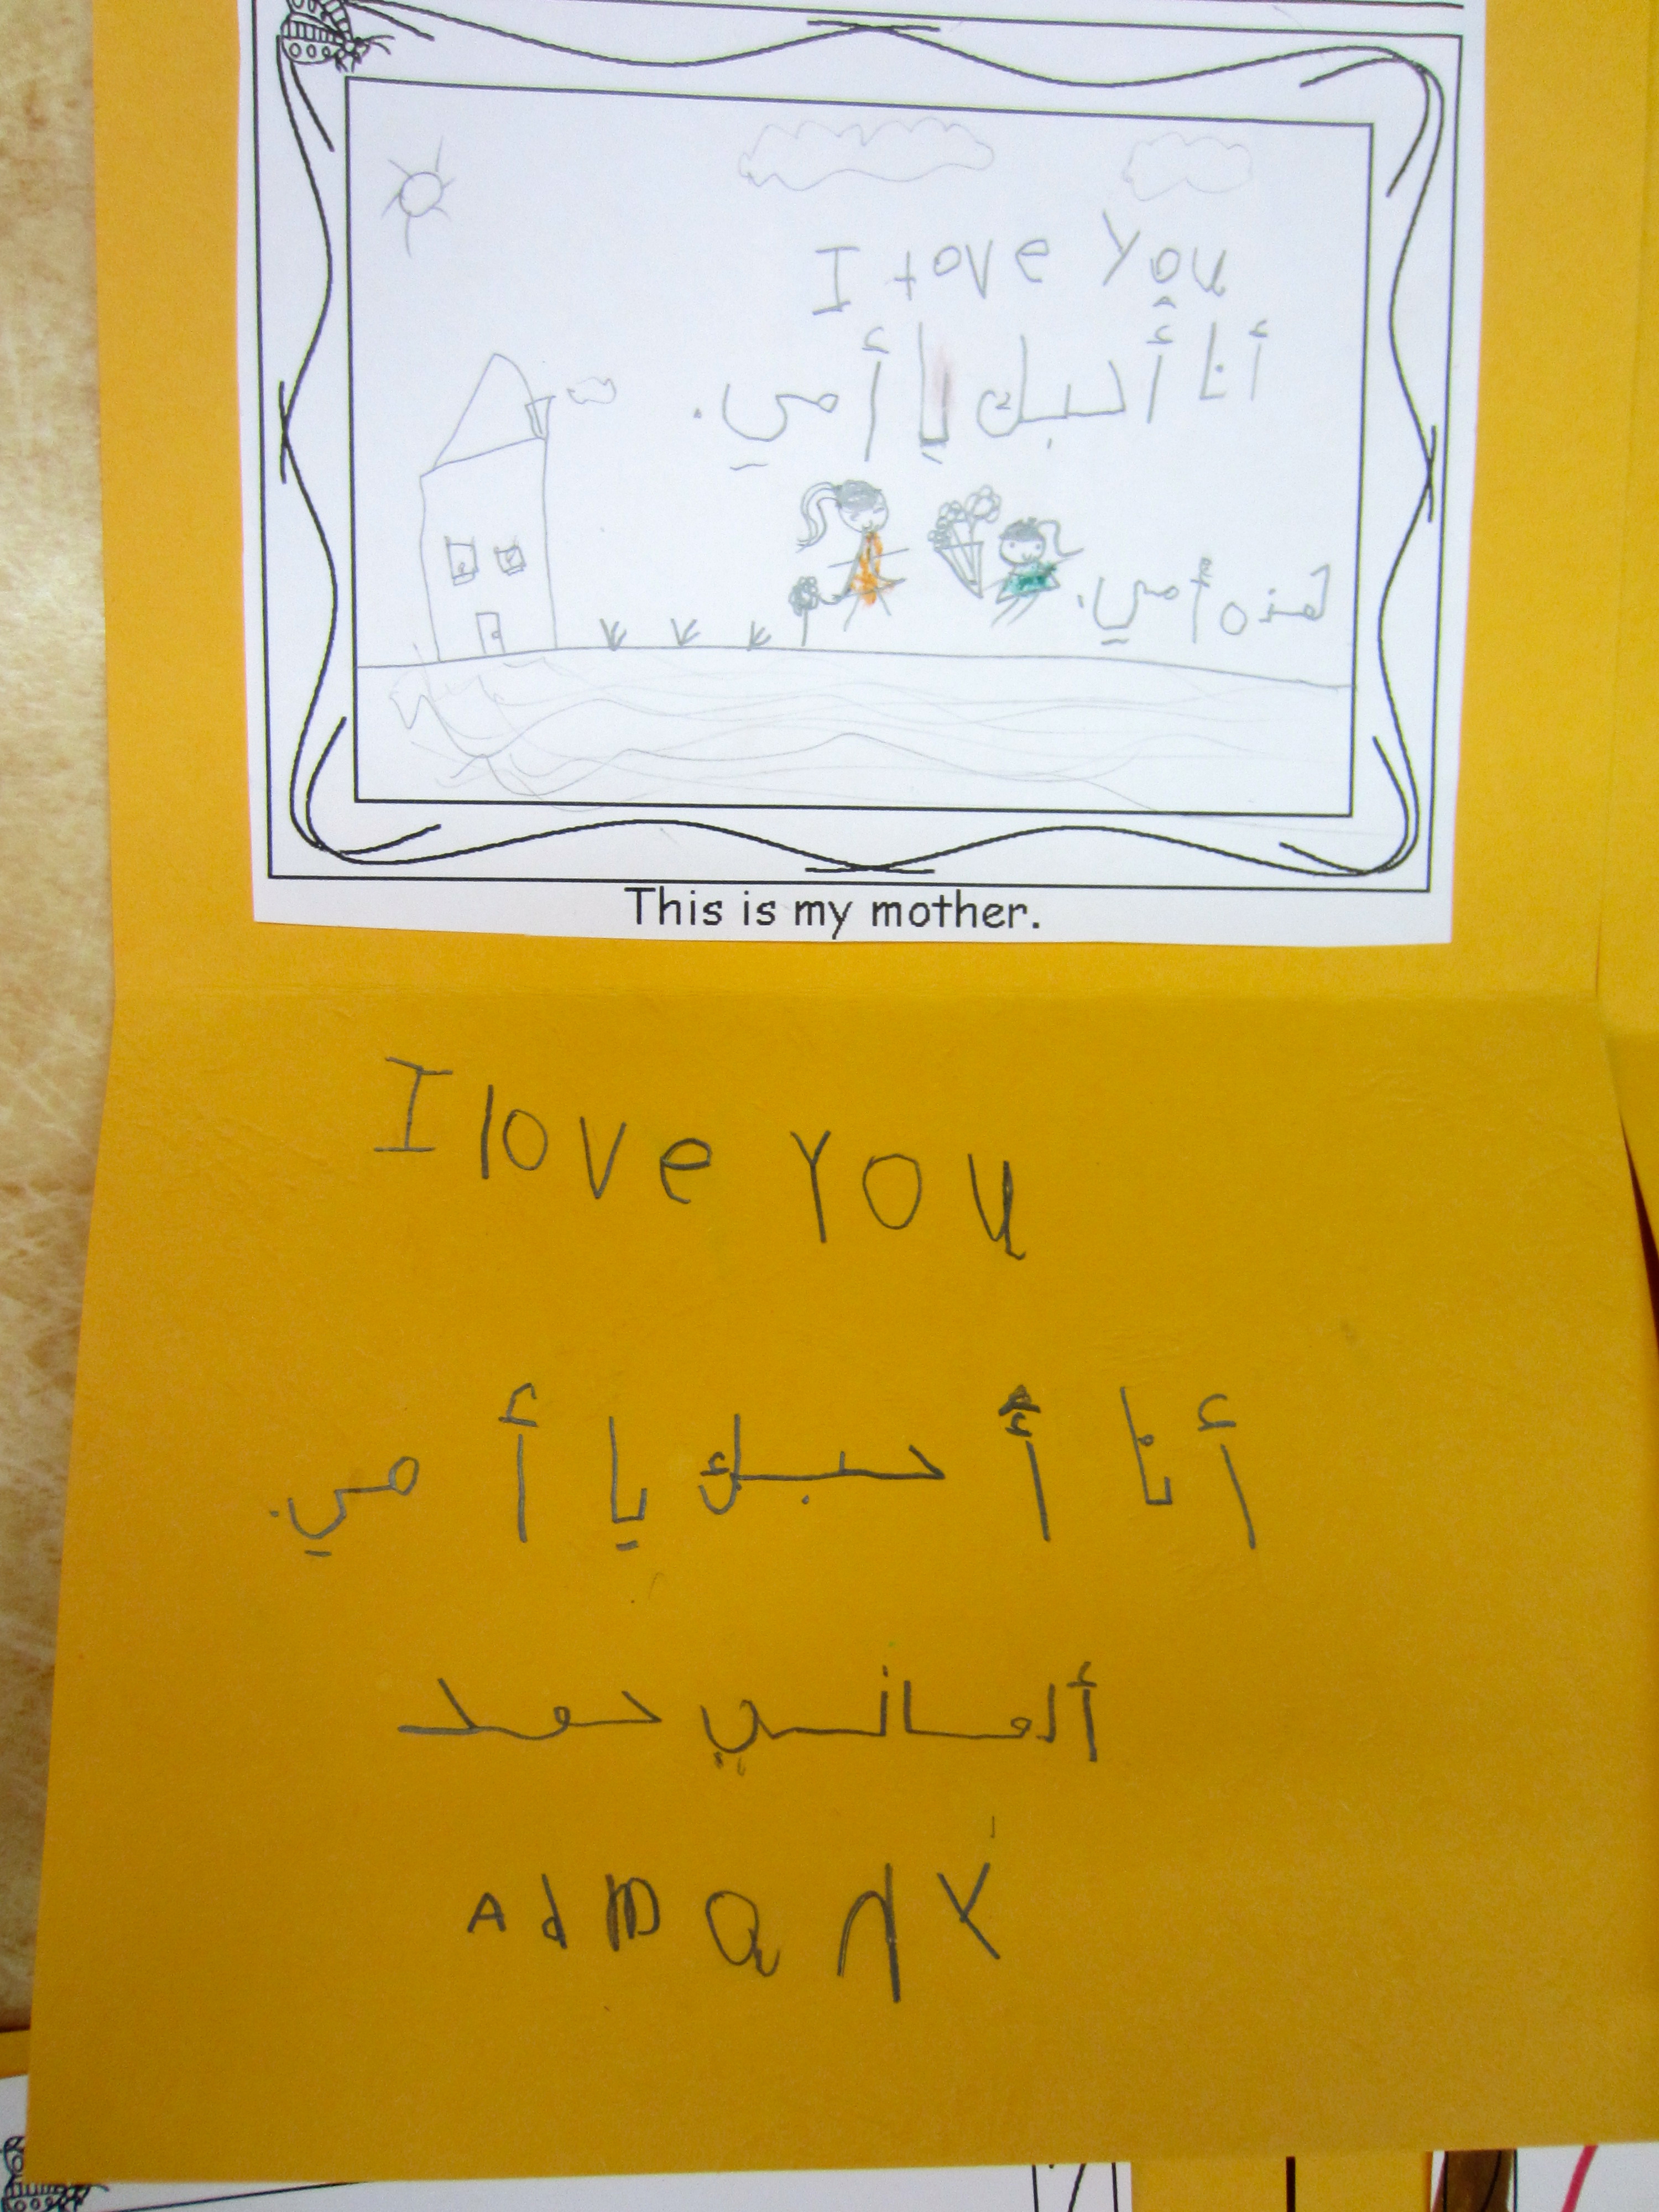 I love You
أنا أحبك يا أمي.
هذه أمي.
This is my mother.
I love You
أنا أحبك يا أمي.
ألماني حمد